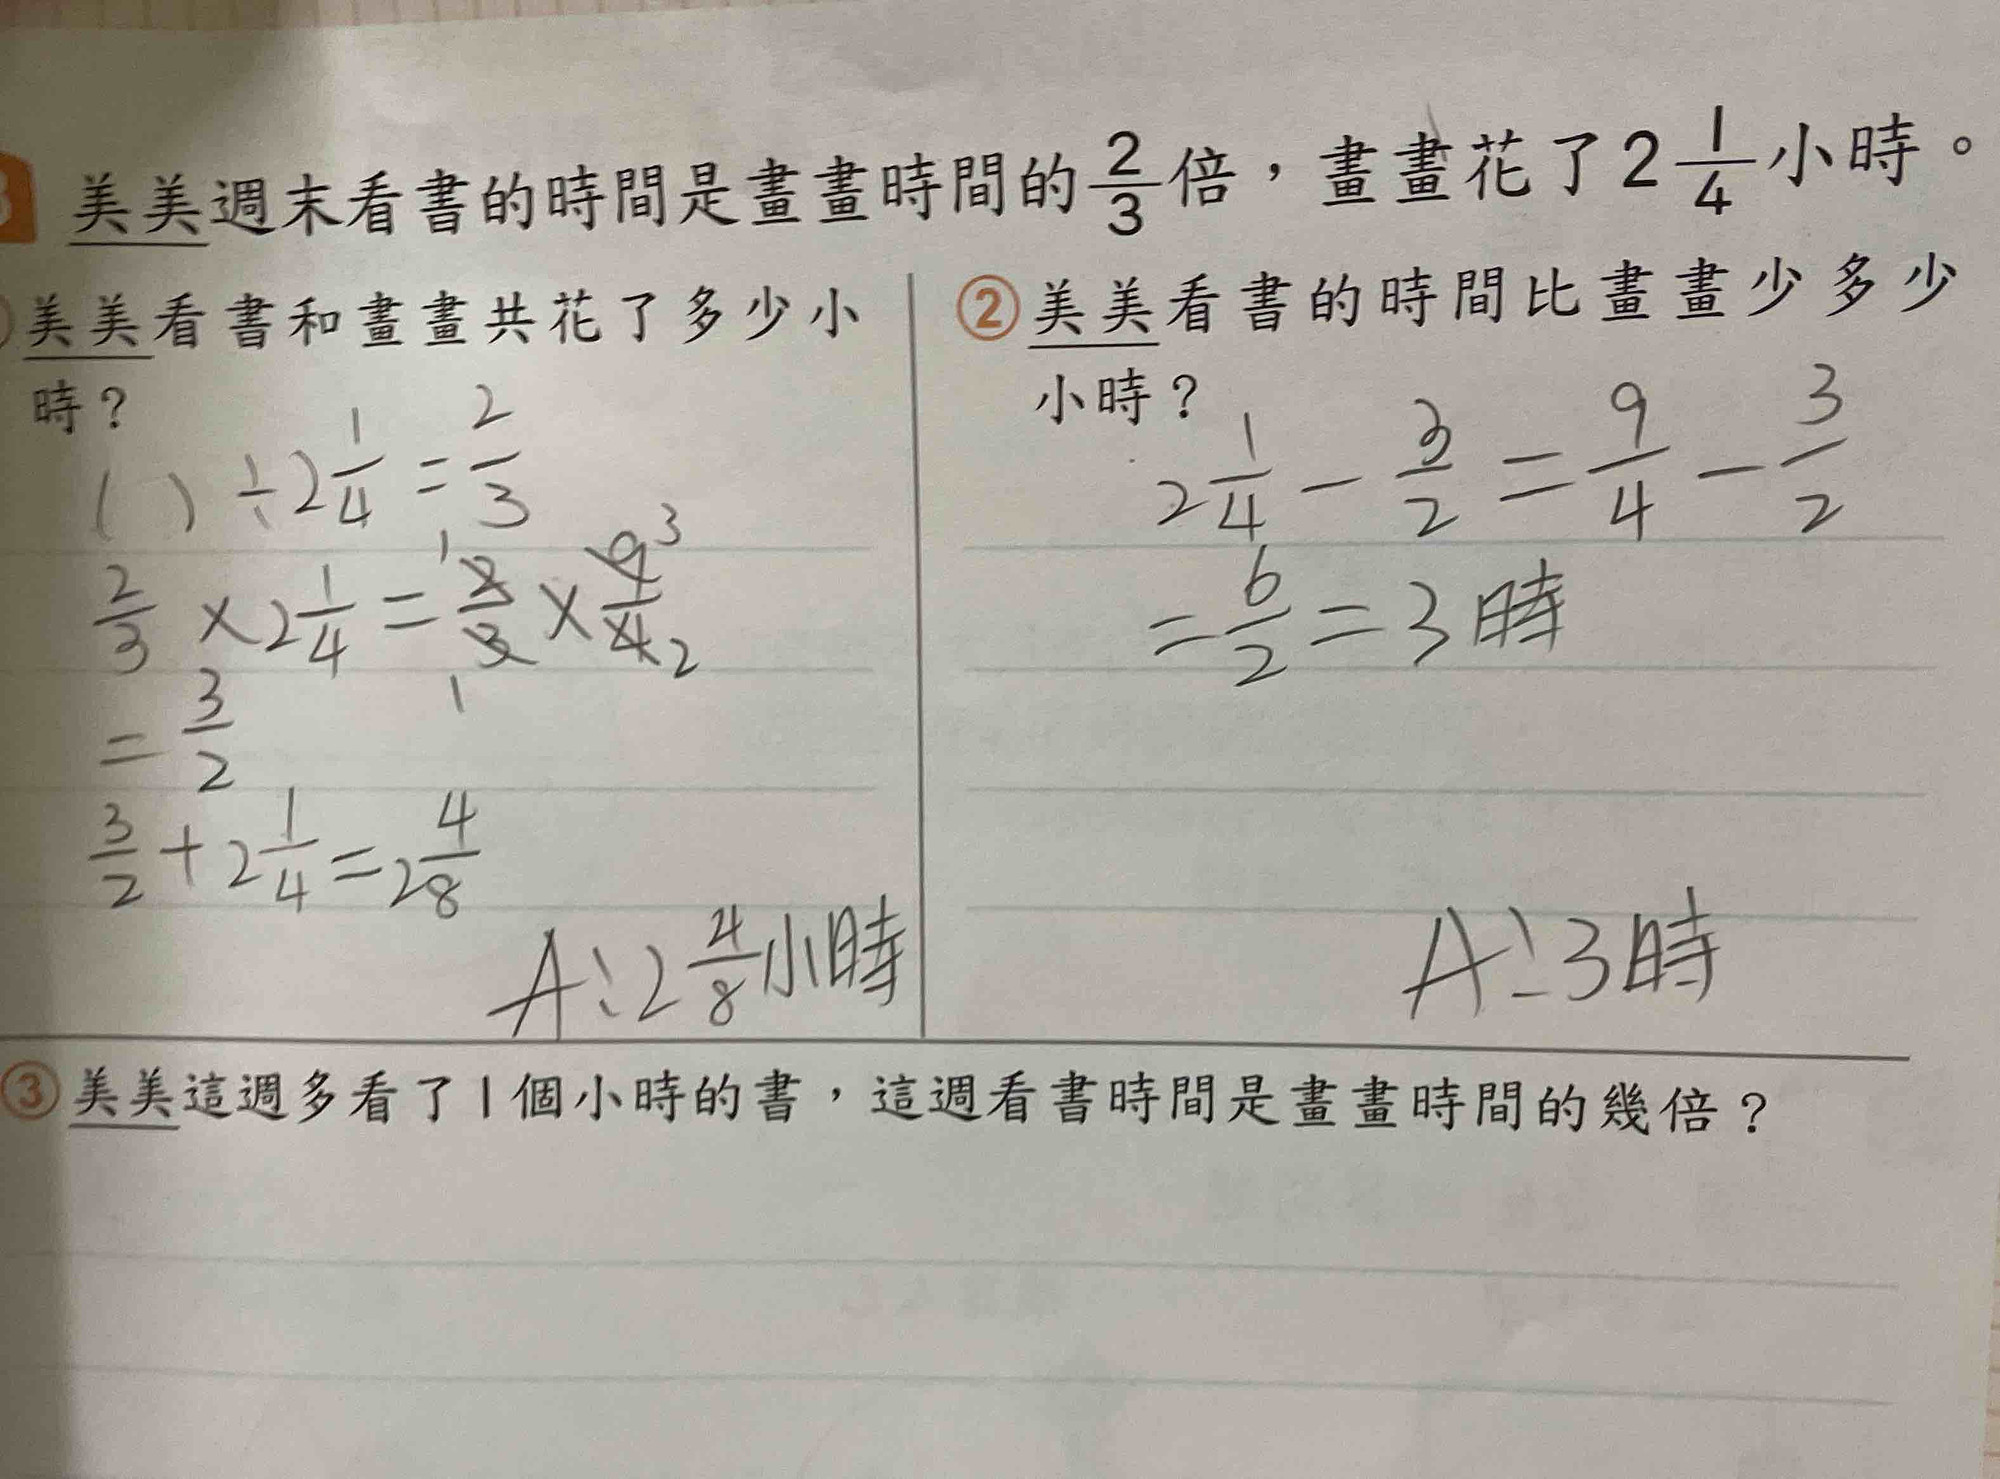 美美週末看書的時間是畫畫時間的2/3倍，畫畫花了2 1/4小時。
美美看書和畫畫共花了多少小
時？
( ) ÷ 2 1/4 = 2/3
2/3 × 2 1/4 = 2/3 × 9/4
1 1 3 2
= 3/2
3/2 + 2 1/4 = 2 4/8
A：2 4/8 小時
② 美美看書的時間比畫畫少多少
小時？
2 1/4 - 3/2 = 9/4 - 3/2
= 6/2 = 3時
A：3時
③ 美美這週多看了1個小時的書，這週看書時間是畫畫時間的幾倍？